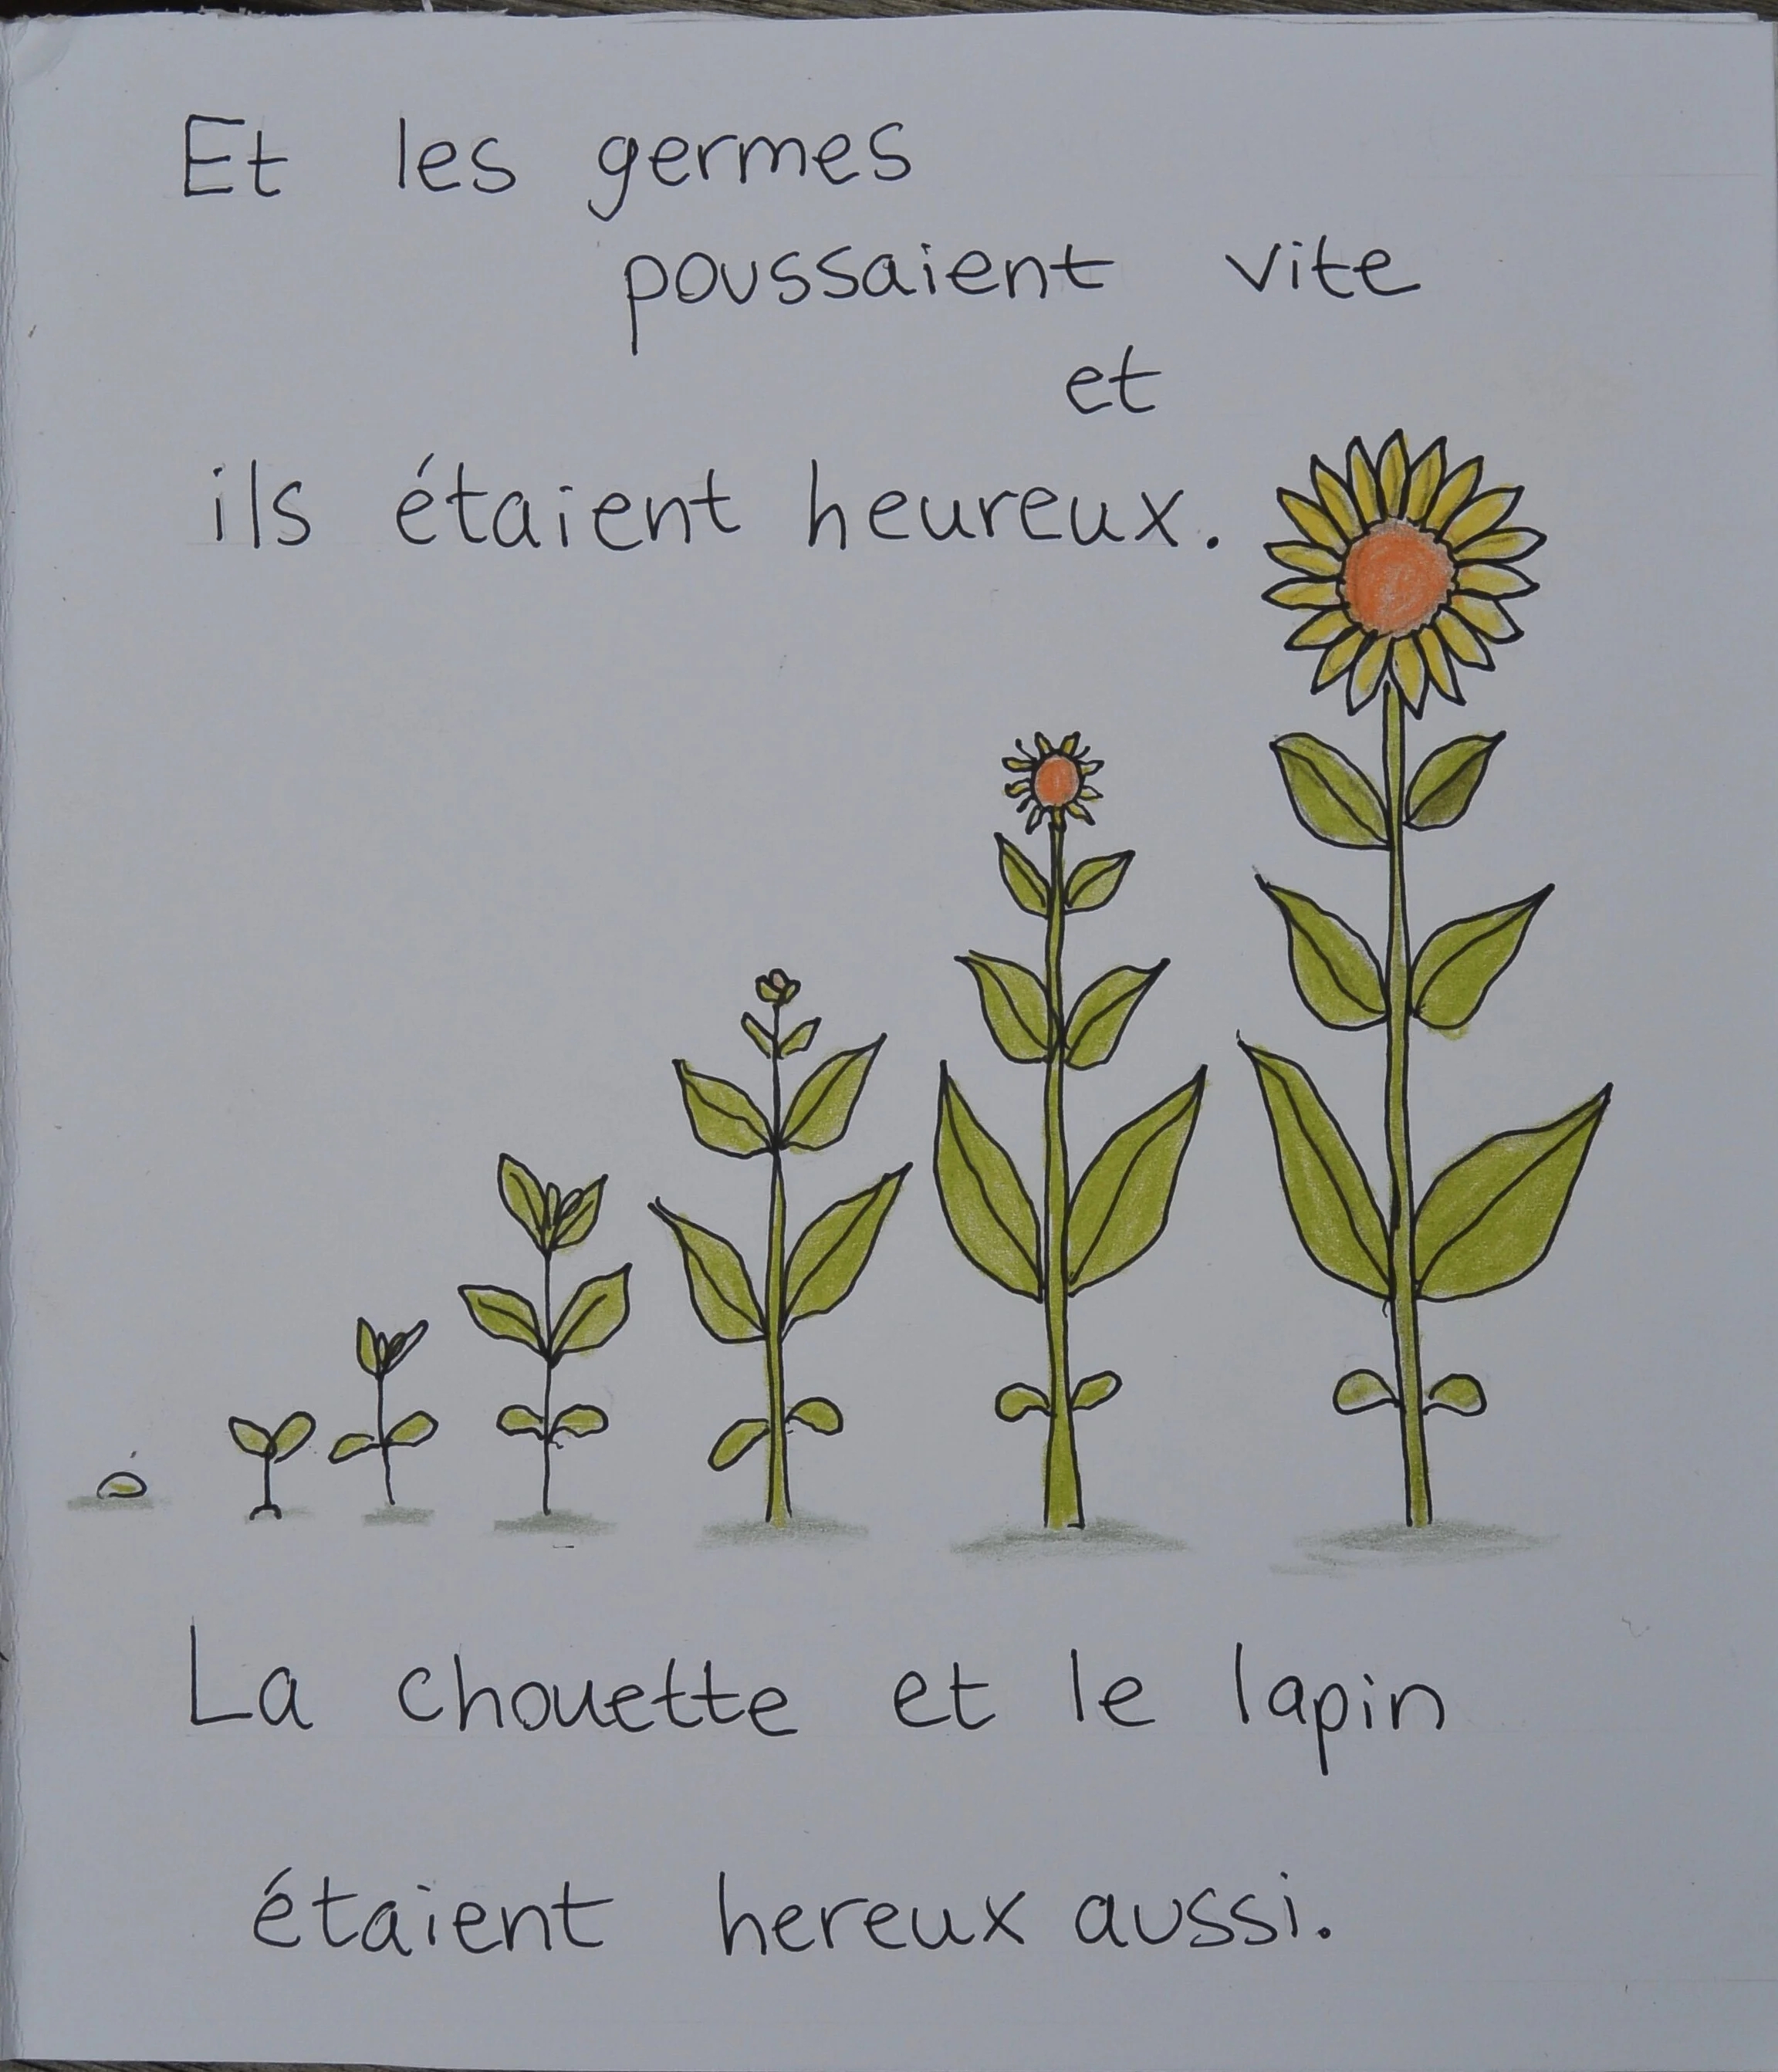 Et les germes
poussaient vite
et
ils étaient heureux.
La chouette et le lapin
étaient hereux aussi.